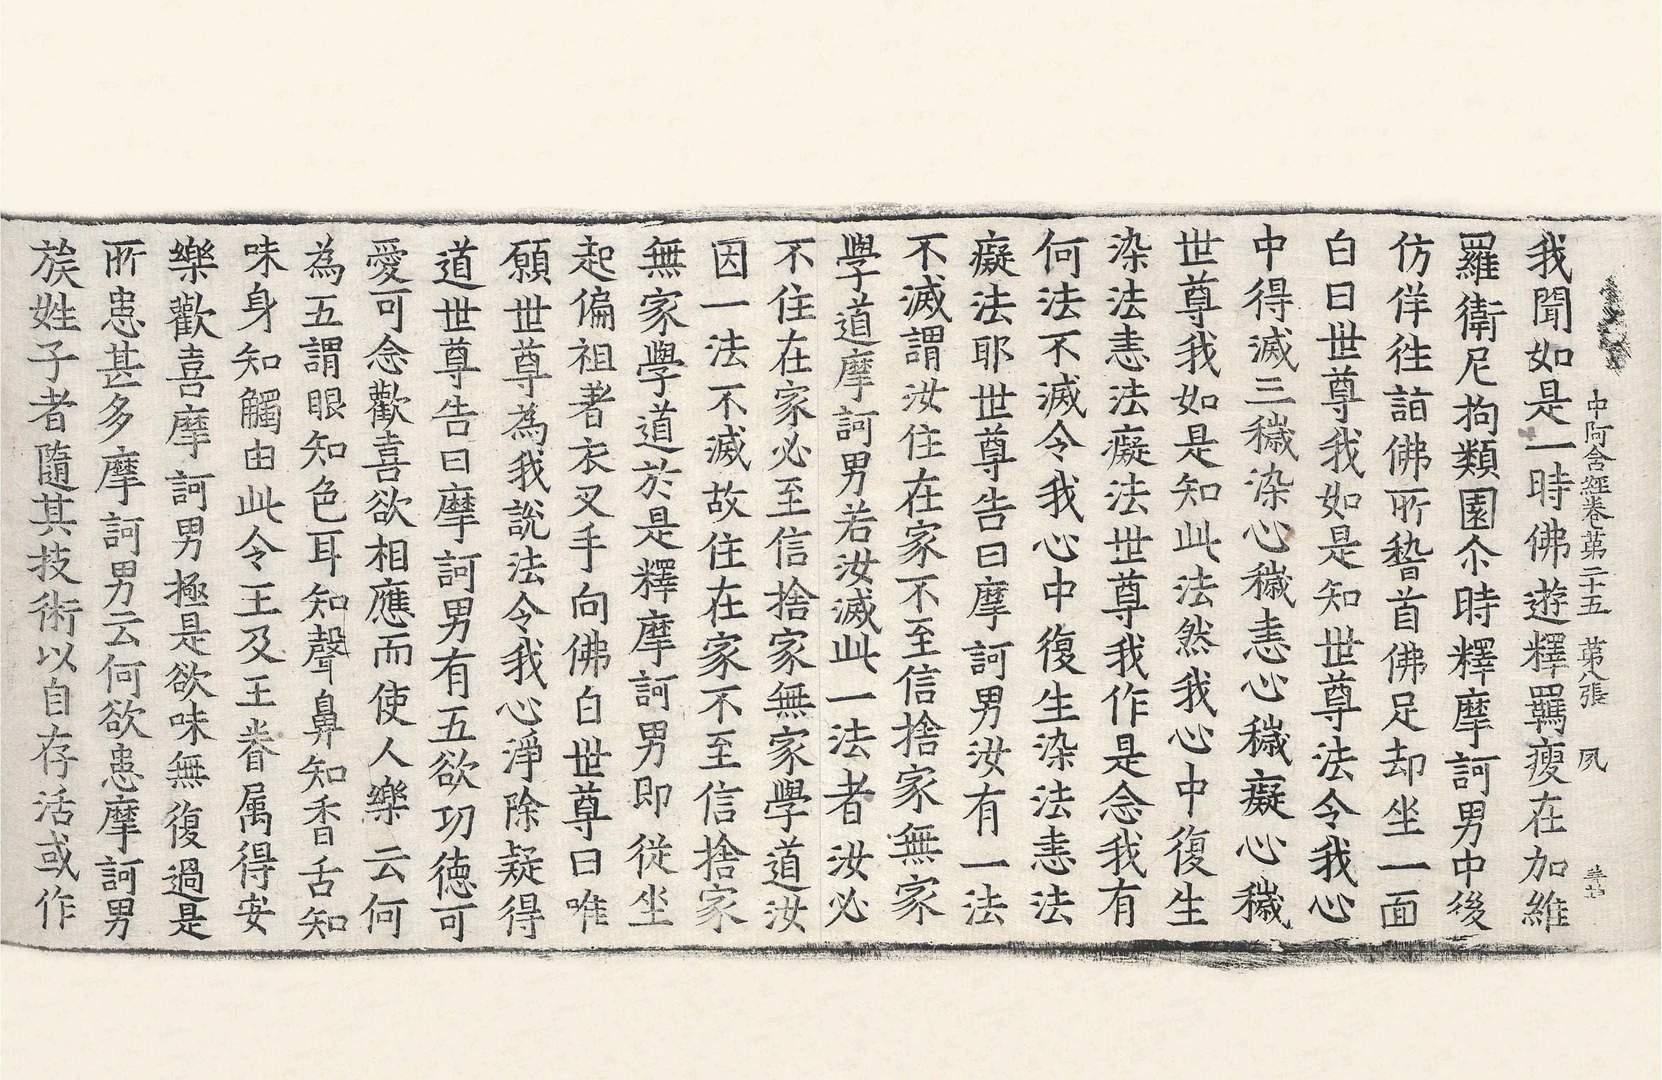 中阿含經卷第二十五 第八張 夙
我聞如是一時佛遊釋羇瘦在加維
羅衛尼拘類園尒時釋摩訶男中後
仿佯往詣佛所稽首佛足却坐一面
白曰世尊我如是知世尊法令我心
中得滅三穢染心穢恚心穢癡心穢
世尊我如是知此法然我心中復生
染法恚法癡法世尊我作是念我有
何法不滅令我心中復生染法恚法
癡法耶世尊告曰摩訶男汝有一法
不滅謂汝住在家不至信捨家無家
學道摩訶男若汝滅此一法者汝必
不住在家必至信捨家無家學道汝
因一法不滅故住在家不至信捨家
無家學道於是釋摩訶男即從坐
起偏袒著衣叉手向佛白世尊曰唯
願世尊為我說法令我心淨除疑得
道世尊告曰摩訶男有五欲功德可
愛可念歡喜欲相應而使人樂云何
為五謂眼知色耳知聲鼻知香舌知
味身知觸由此令王及王眷属得安
樂歡喜摩訶男極是欲味無復過是
所患甚多摩訶男云何欲患摩訶男
族姓子者隨其技術以自存活或作